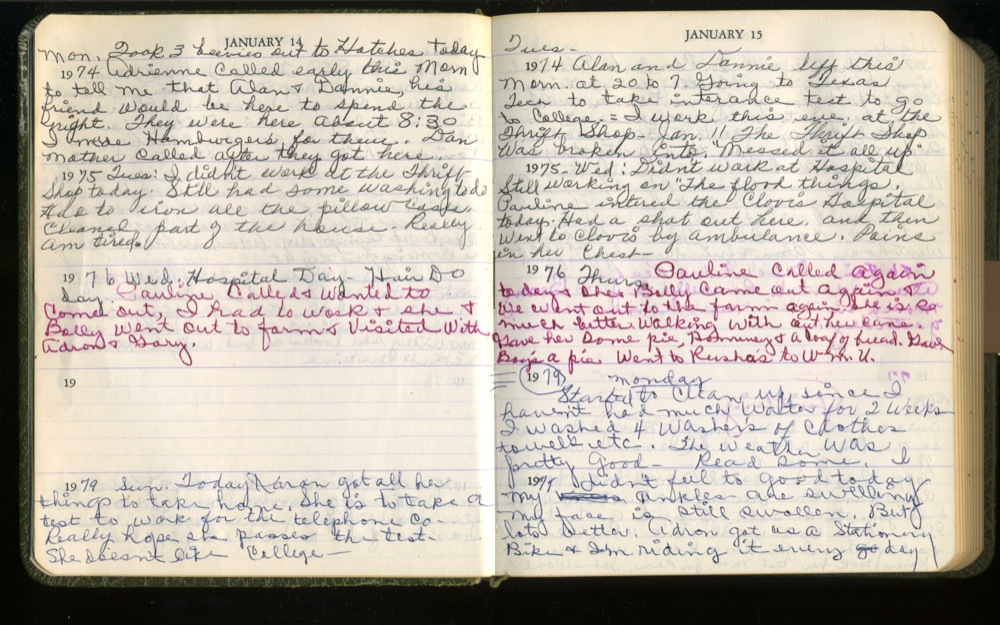 JANUARY 14
Mon. Took 3 beevies out to Hatches today
1974 Adrienne Called early this Morn
to tell me that Alan & Dannie, his
friend would be here to spend the
night. They were here about 8:30
I made Hamburgers for them. Dan
Mother Called after they got here.
1975 Tues: I didn't work at the Thrift
Shop today. Still had some washing to do
Had to iron all the pillow cases.
Cleaned part of the house. Really
am tired.
1976 Wed: Hospital Day - Hair Do
day. Pauline, Called & Wanted to
Come out, I had to work & she &
Boley Went out to farm & Visited With
Adron & Gary.
19
1979 Sun. Today Karon got all her
things to take home. She is to take a
test to work for the telephone Co.
Really hope she passes the test.
She doesn't like College—
JANUARY 15
Tues-
1974 Alan and Dannie left this
Morn. at 20 to 7. Going to Texas
Tech to take interance test to go
to College. = I work this eve. at the
Thrift Shop - Jan. 11 The Thrift Shop
Was broken into. "Messed it all up"
1975- Wed: Didn't Work at Hospital
Still working on "The flood things."
Pauline intered the Clovis Hospital
today. Had a shot out here, and then
Went to Clovis by ambulance. Pains
in her Chest-
1976 Thurs Pauline Called again
today & she & Bolley Came out again &
We went out to the farm again. She is so
much better. Walking With out her cane.
Gave her some pie, & a loaf of bread. Gave
Boys a pie. Went to Rusha's to W.M.U.
1979 Monday
Started to Clean up since I
haven't had much Water for 2 Weeks
I washed 4 Washers of Clothes
towels etc. The weather Was
pretty Good— Read some. I
19 didn't feel to good today
My ankles are swelling
my face is still swollen. But
lots better. Adron got us a Stationery
Bike & I'm riding it every day